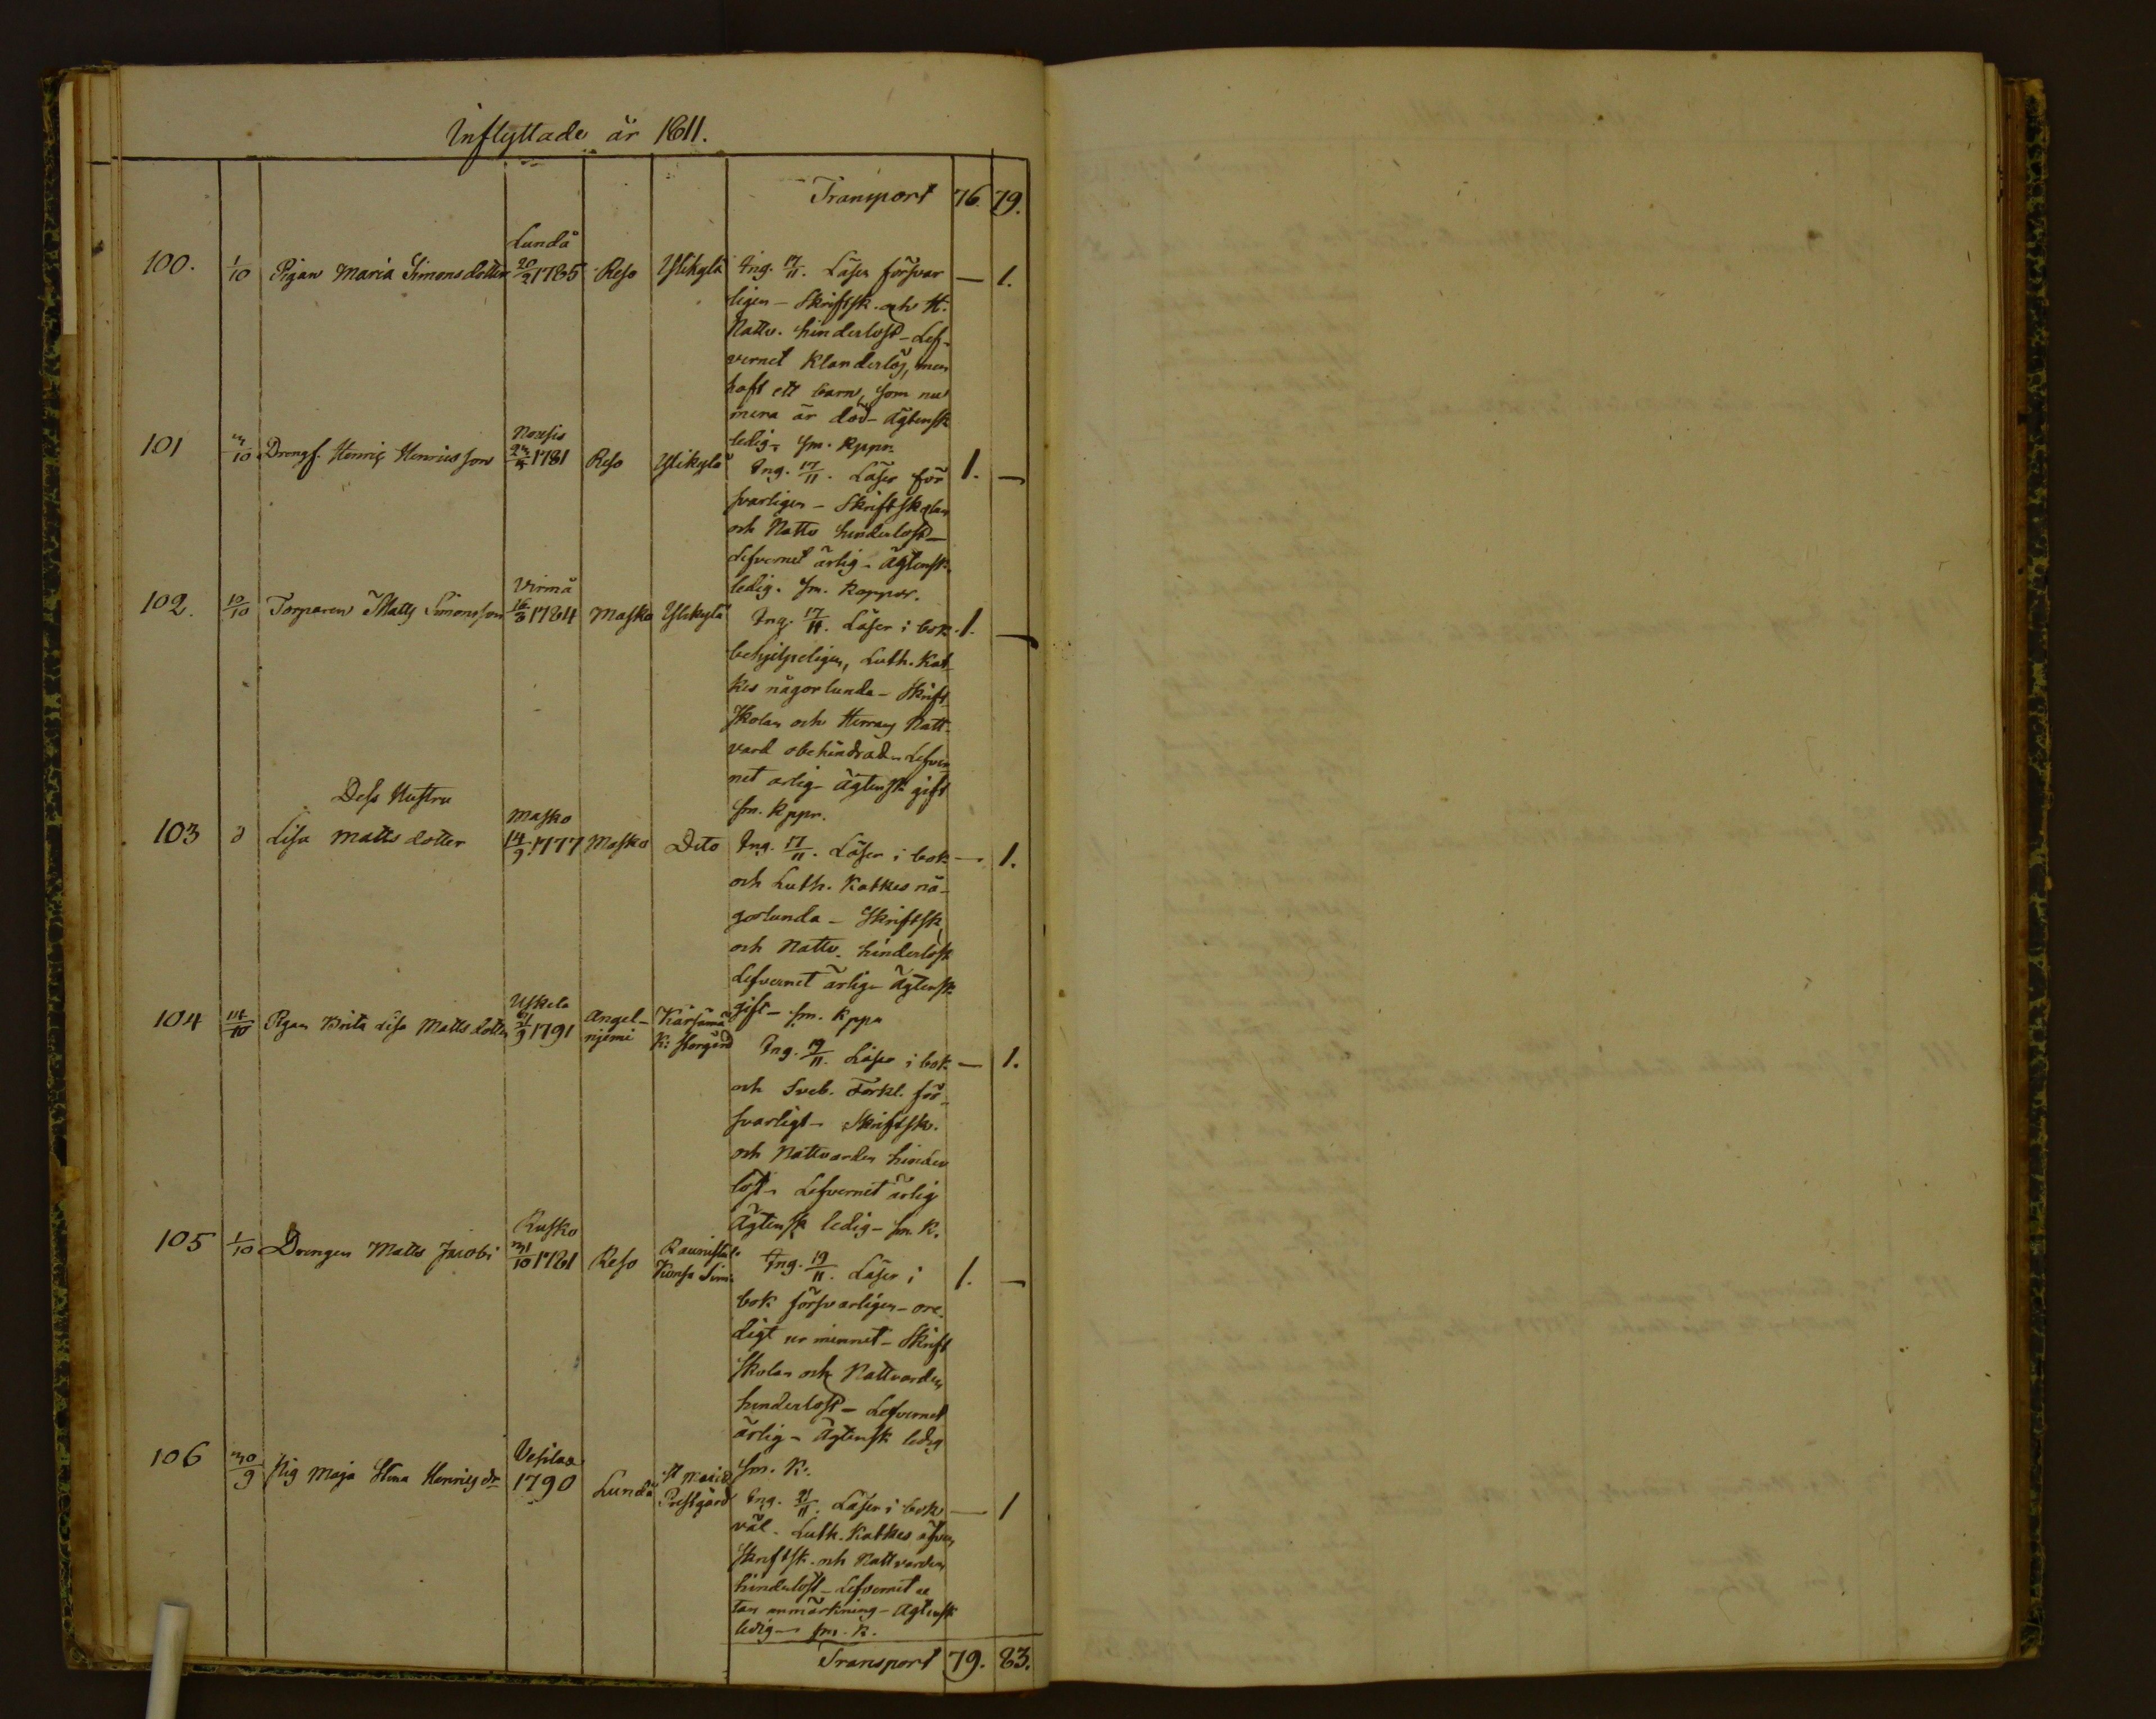 Inflyttade år 1811.
Transport 76. 79.
Lundå
100. 1/10 Pigan Maria Simonsdotter 20/2 1785 Reso Ylikylä Ing. 17/11. Läser försvar — 1.
ligen – Skriftsk. och H.
Nattv. hinderlöst – Lef-
vernet klanderlöst, men
haft ett barn, som nu
mera är död – Ägtensk
ledig. sm. Kppr.
Nousis
101 3/10 Drengf. Henric Henricsson 1781 Reso Ylikylä Ing. 17/11. Läser för 1. —
svarligen – Skriftskolan
och Nattv hinderlöst –
Lefvernet ärlig – Ägtensk.
ledig. sm. Koppor.
Virmå
102. 10/10 Torparen Matts Simonsson 16/3 1784 Masko Ylikylä Ing. 17/11. Läser i bok 1. —
behjelpeligen, Luth. Kat-
kes någorlunda – Skrift-
skolan och Herrans Natt-
vard obehindrad – Lefver
net ärlig – Ägtensk gift
sm. Kppr.
Dess Hustru
Masko
103 d Lisa Matts dotter 14/9 1777 Masko Dito Ing. 17/11. Läser i bok — 1.
och Luth. Katkes nå-
gorlunda – Skriftsk
och Nattv. hinderlöst
Lefvernet ärlig – Ägtensk
gift – sm. Kppr
Uskela
104 14/10 Pigan Brita Lisa Matts dotter 1791 Angel- Karsama
njemi K: Storgård Ing. 19/11. Läser i bok — 1.
och Sveb. Förkl. för-
svarligt – Skriftsk.
och Nattvarden hinder
löst – Lefvernet ärlig
Ägtensk ledig – sm. K.
Rusko
105 1/10 Drengen Matts Jacobs 31/10 1781 Reso Raunistula
Konsa Sim. Ing. 19/11. Läser i 1. —
bok försvarligen – ore-
digt ur minnet – Skrift
skolan och Nattvarden
hinderlöst – Lefvernet
ärlig – Ägtensk ledig
sm. K.
Vesilax
106 30/9 Pig Maja Stina Henricsdr 1790 Lundå St Marie
Prestgård Ing. 21/11. Läser i bok — 1
väl. Luth. Katkes äfven
skriftsk. och Nattvarden
hinderlöst – Lefvernet u
tan anmärkning – Ägtensk
ledig – sm. K.
Transport 79. 83.